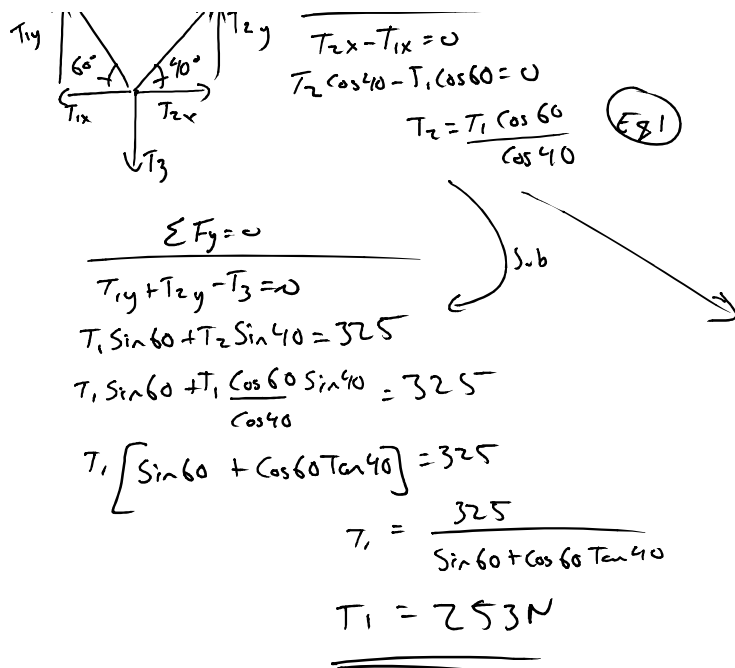 T1y T2y
60° 40°
T1x T2x
T3
T2x - T1x = 0
T2 Cos40 - T1 Cos60 = 0
T2 = T1 Cos 60 / Cos 40
Eq 1
Sub
ΣFy = 0
T1y + T2y - T3 = 0
T1 Sin60 + T2 Sin40 = 325
T1 Sin60 + T1 Cos60 / Cos40 Sin40 = 325
T1 [Sin60 + Cos60 Tan40] = 325
T1 = 325 / Sin60 + Cos60 Tan40
T1 = 253N